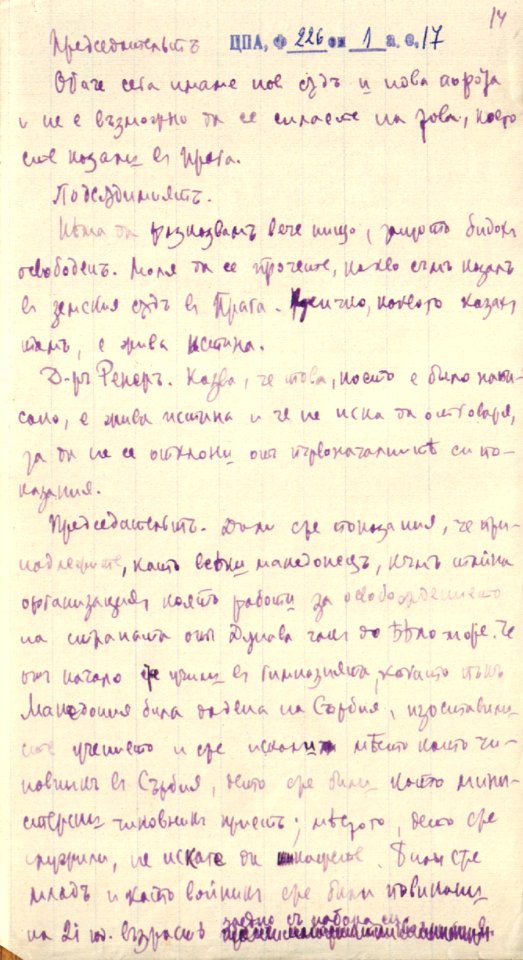 14
Председательтъ ЦПА, ф 226 оп 1 а. е. 17
Обаче сега имаме нов съдъ и нова аюрота
и не е възможно да се силаете на зова, което
сте казали в Прага.
Подсѫдимиятъ.
Нѣма да разказвамъ вече нищо, защото бидох
освободенъ. Моля да се прочете, какво съмъ казалъ
в земския съдъ в Прага. Всичко, каквото казах
тамъ, е жива истина.
Д-ръ Рекеръ. Казва, че това, което е било напи-
сано, е жива истина и че не иска да отговаря,
за да не се отклони отъ първоначалнитѣ си по-
казания.
Председательтъ. Дали сте показания, че при-
надлежите, както всѣки македонецъ, къмъ тайна
организация, която работи за освобождението
на страната отъ Дунава чак до Бѣло море. Че
от начало сте учили в гимназията, когато пъкъ
Македония била дадена на Сърбия, изоставили
сте учението и сте искали мѣсто като чи-
новникъ в Сърбия, дето сте били като мини-
стерски чиновник приетъ; мѣстото, дето сте
служили, не искате да кажете. Били сте
младъ и като войник сте били повикани
на 21 год. възрастъ заедно съ набора си